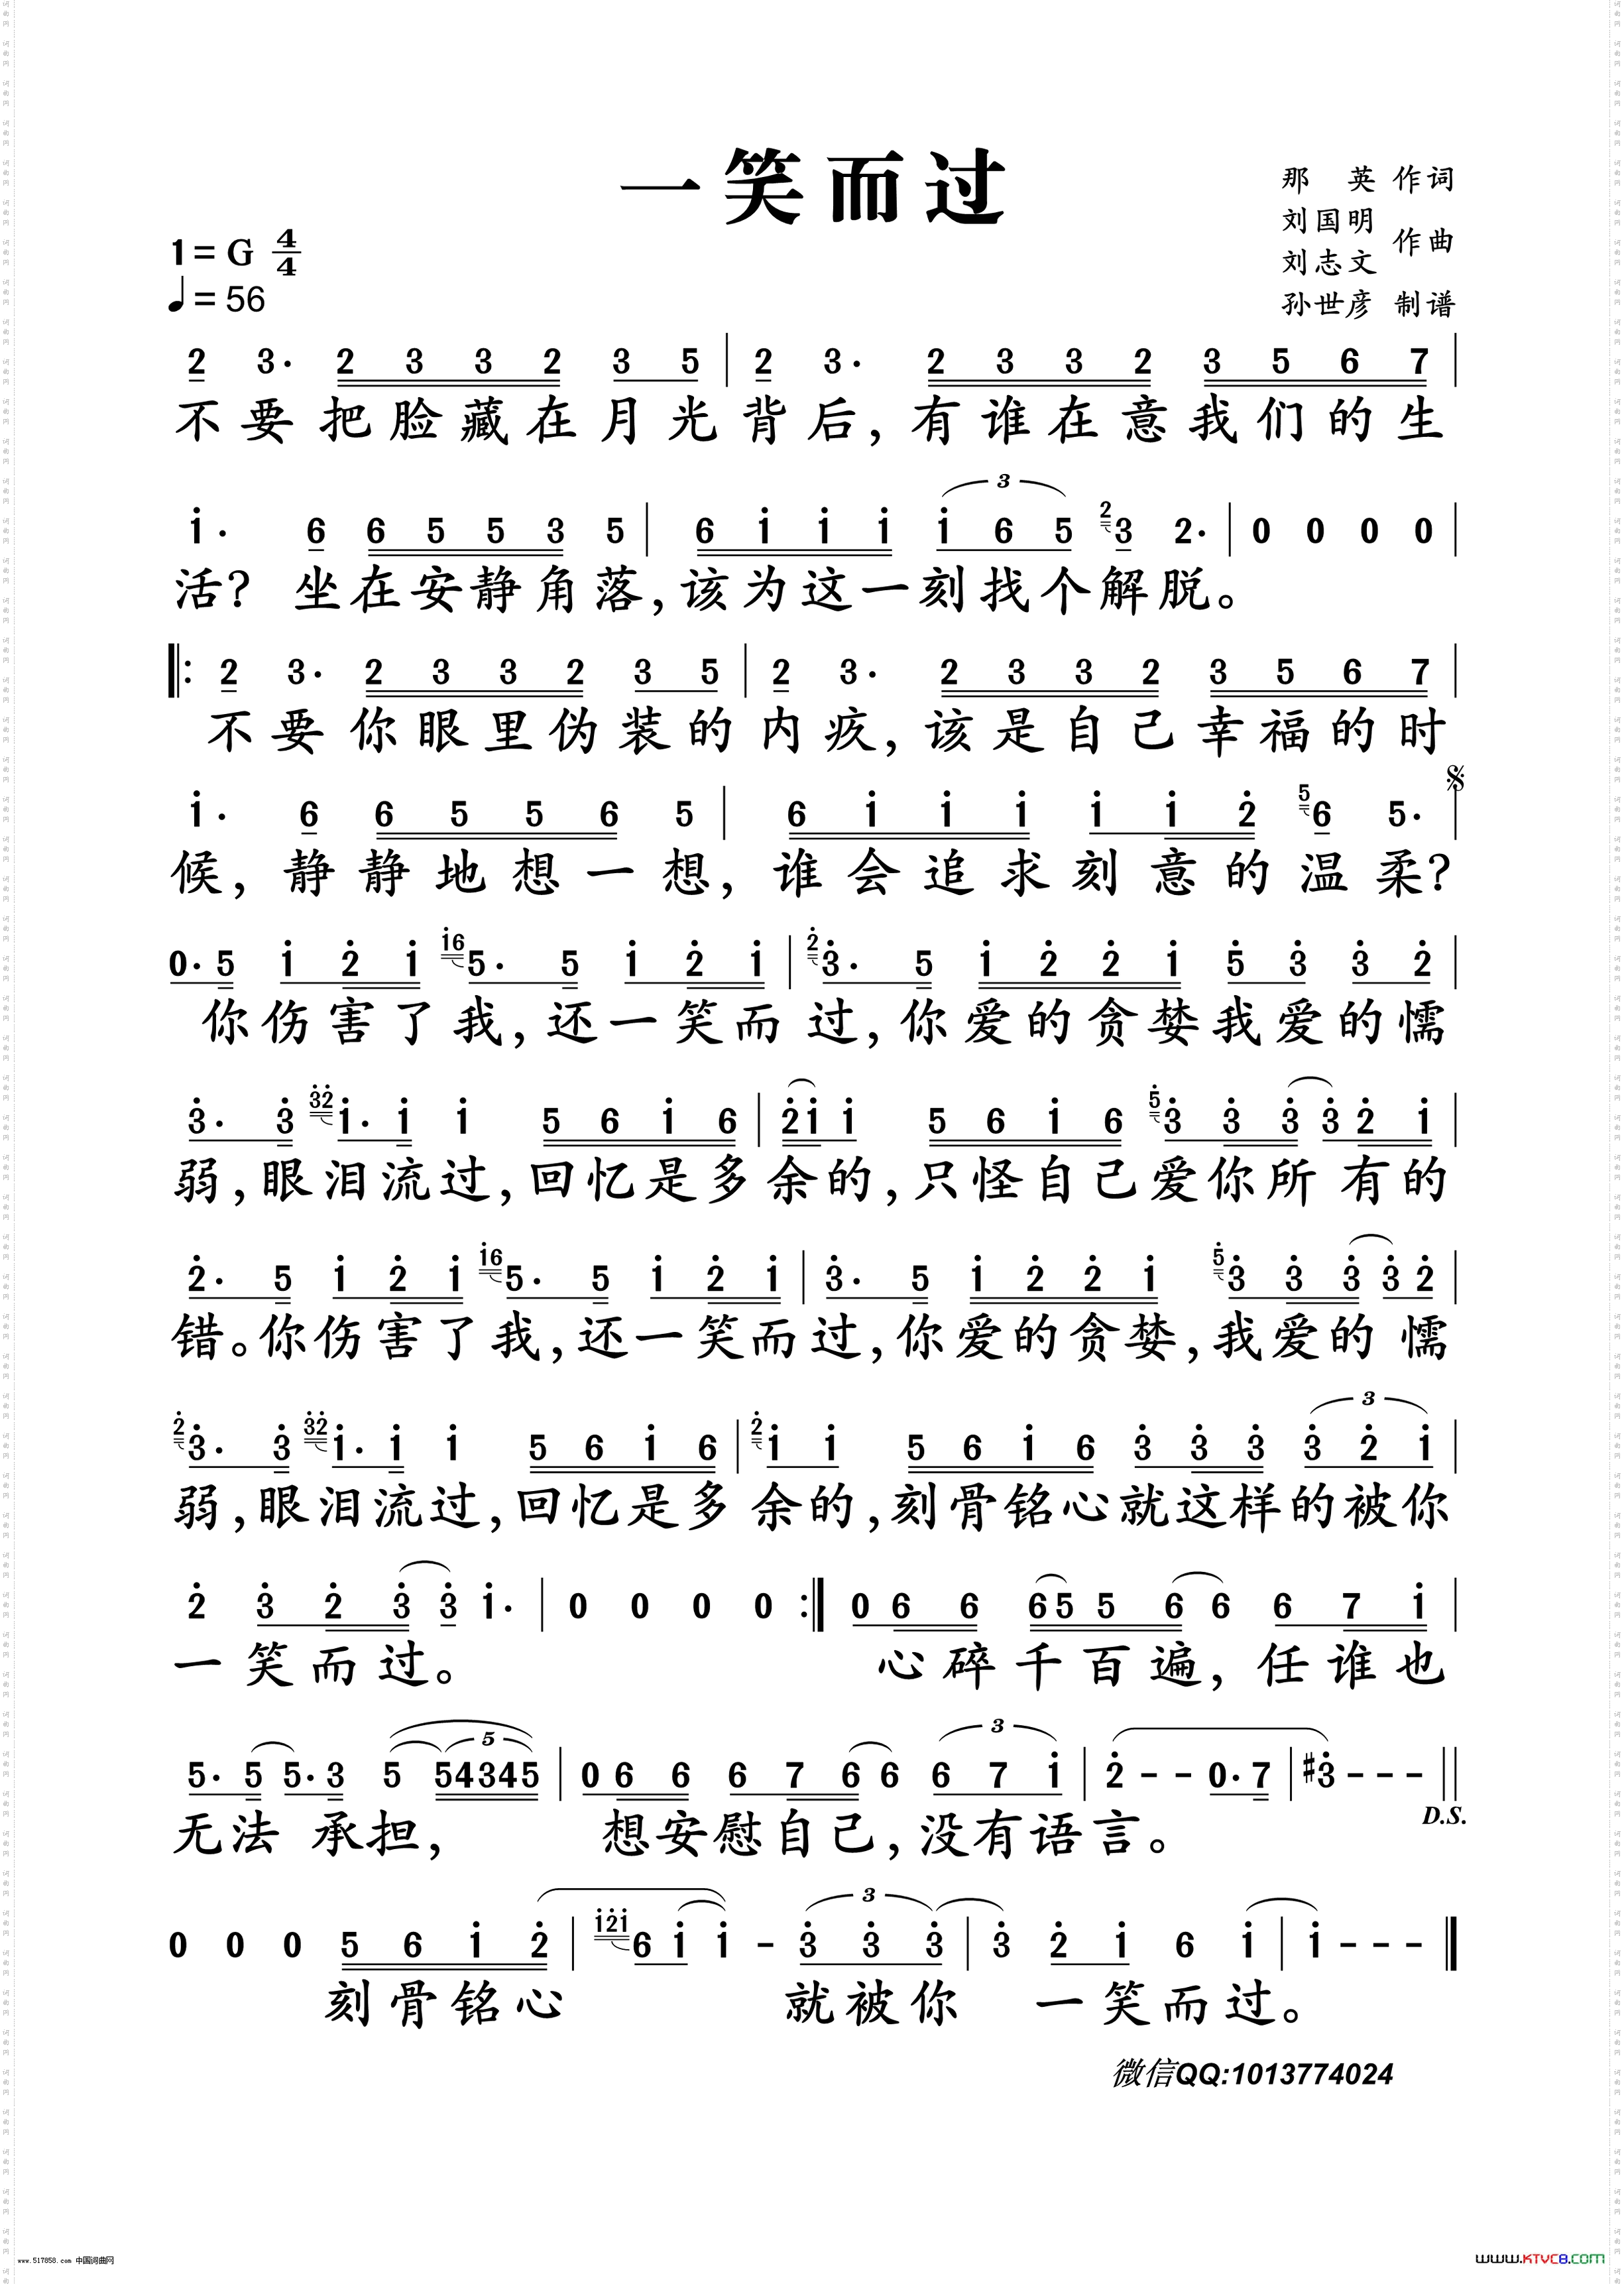 一笑而过
那 英 作词
刘国明
刘志文 作曲
孙世彦 制谱
1=G 4/4
♩=56
2 3. 2 3 3 2 3 5 | 2 3. 2 3 3 2 3 5 6 7 |
不要把脸藏在月光背后,有谁在意我们的生
3
i. 6 6 5 5 3 5 | 6 i i i i 6 5 2 3 2. | 0 0 0 0 |
活?坐在安静角落,该为这一刻找个解脱。
2 3. 2 3 3 2 3 5 | 2 3. 2 3 3 2 3 5 6 7 |
不要你眼里伪装的内疚,该是自己幸福的时
i. 6 6 5 5 6 5 | 6 i i i i i 2 5 6 5. |
候,静静地想一想,谁会追求刻意的温柔?
0. 5 i 2 i i6 5. 5 i 2 i | 2 3. 5 i 2 2 i 5 3 3 2 |
你伤害了我,还一笑而过,你爱的贪婪我爱的懦
3. 3 32 i. i i 5 6 i 6 | 2i i 5 6 i 6 5 3 3 3 3 2 i |
弱,眼泪流过,回忆是多余的,只怪自己爱你所有的
2. 5 i 2 i i6 5. 5 i 2 i | 3. 5 i 2 2 i 5 3 3 3 3 2 |
错。你伤害了我,还一笑而过,你爱的贪婪,我爱的懦
3
2 3. 3 32 i. i i 5 6 i 6 | 2 i i 5 6 i 6 3 3 3 3 2 i |
弱,眼泪流过,回忆是多余的,刻骨铭心就这样的被你
2 3 2 3 3 i. | 0 0 0 0 :| 0 6 6 6 5 5 6 6 6 7 i |
一笑而过。 心碎千百遍,任谁也
5 3
5. 5 5. 3 5 54345 | 0 6 6 6 7 6 6 6 7 i | 2 - - 0. 7 | #3 - - - ||
无法承担, 想安慰自己,没有语言。
D.S.
3
0 0 0 5 6 i 2 | i2i 6 i i - 3 3 3 | 3 2 i 6 i | i - - - |
刻骨铭心 就被你 一笑而过。
微信QQ:1013774024
www.517858.com 中国词曲网
www.KTVC8.com